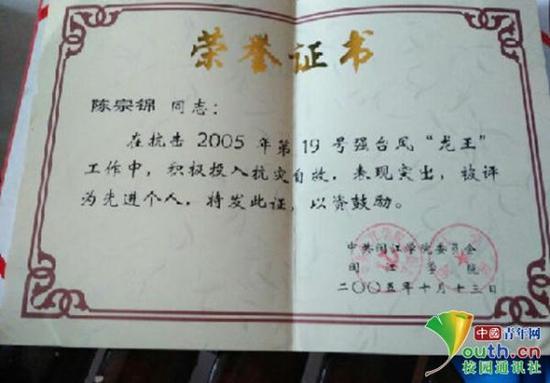 荣誉证书
陈宗锦 同志：
在抗击2005年第19号强台风“龙王”
工作中，积极投入抗灾自救，表现突出，被评
为先进个人，特发此证，以资鼓励。
中共闽江学院委员会
闽江学院
二〇〇五年十月十三日
中國青年网
youth.cn
校园通讯社